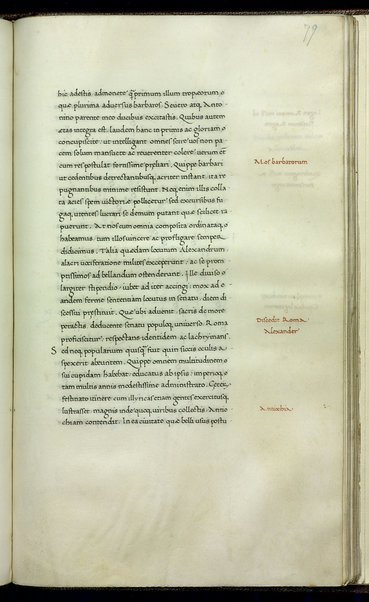 79
hic adestis admonete q̃ primum illum tropeorum o
quę plurima aduersus barbaros Seuero atq; Anto
nino parente meo ducibus excitastis. Quibus autem
ętas integra est, laudem hanc in primis ac gloriam
concupiscite, ut intelligant omnes scire uos non pa
cem solum mansuete ac reuerenter colere uerum et
cum res postulat fortissime pręliari. Quippe barbari
ut cedentibus detrectantibusq; acriter instant, ita re
pugnantibus minime resistunt. Neq; enim illis colla
ta acies spem uictorię pollicetur, sed excursibus fu
gaq; utentes lucrari se demum putant quę scilicet ra
puerunt. At nos cum omnia composita ordinataq;
habeamus, tum illos uincere ac profligare semper
didicimus. Talia quędam locutum Alexandrum
alacri uociferatione milites exceperunt, ac se prom
ptissimos ad bellandum ostenderunt.
largiter stipendio, iubet ad iter accingi. mox ad
eandem ferme sententiam locutus in senatu, diem di
scessui prestituit. Quę ubi aduenit, sacris de more
peractis, deducente senatu populoq; uniuerso, Roma
proficiscitur, respectans identidem ac lachrymans.
Sed neq; popularium quisq̃ fuit quin siccis oculis a
spexerit abeuntem. Quippe omnem multitudinem
sui cupidam habebat educatus ab ipsis, imperioq;
tam multis annis modestissime administrato. Cęterū
festinato itinere cum illyricas etiam gentes exercitusq;
lustrasset, magnis inde quoq; uiribus collectis, Antio
chiam contendit. In ea ciuitate quę belli usus postu
Mos barbarorum
Discedit Roma
Alexander
Antiochia